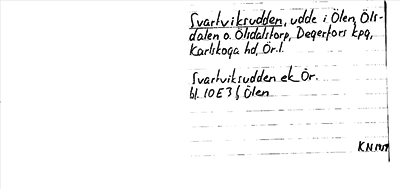 Svartviksudden, udde i Ölen, Öls-
dalen o. Ölsdalstorp, Degerfors kpg,
Karlskoga hd, Ör.l.
Svartviksudden ek Ör.
bl. 10E3f Ölen